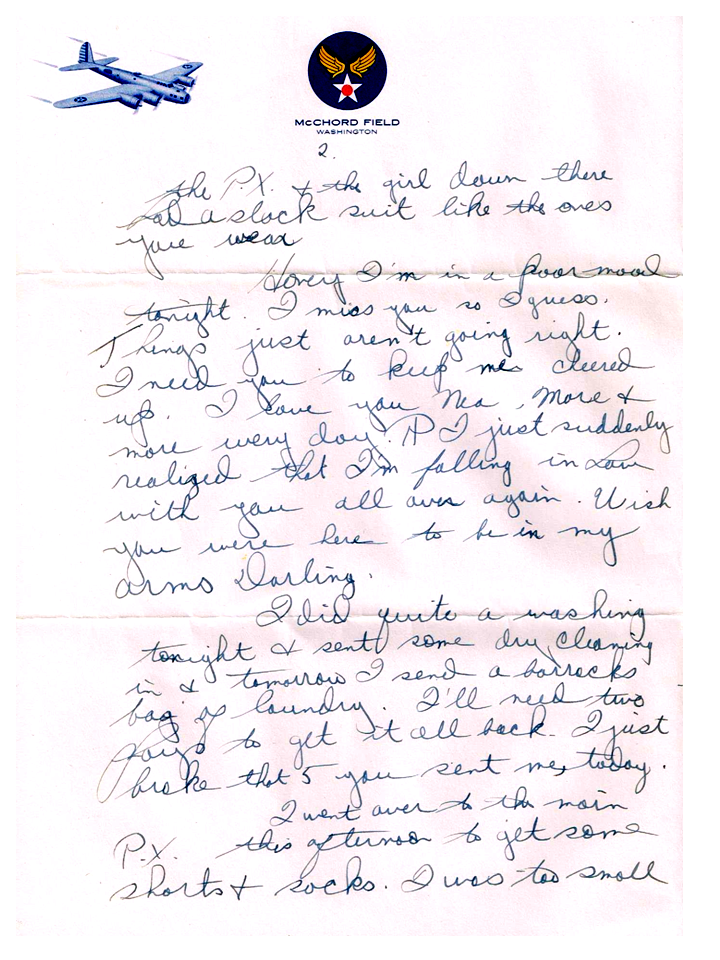 McCHORD FIELD
WASHINGTON
2.
the P.X. & the girl down there
had a slack suit like the ones
you wear
Honey I'm in a poor mood
tonight. I miss you so I guess.
Things just aren't going right.
I need you to keep me cheered
up. I love you Nea, More &
more every day. P I just suddenly
realized that I'm falling in Love
with you all over again. Wish
you were here to be in my
arms Darling.
I did quite a washing
tonight & sent some dry cleaning
in & tomorrow I send a barracks
bag of laundry. I'll need two
pays to get it all back. I just
broke that 5 you sent me, today.
I went over to the main
P.X. this afternoon to get some
shorts & socks. I was too small